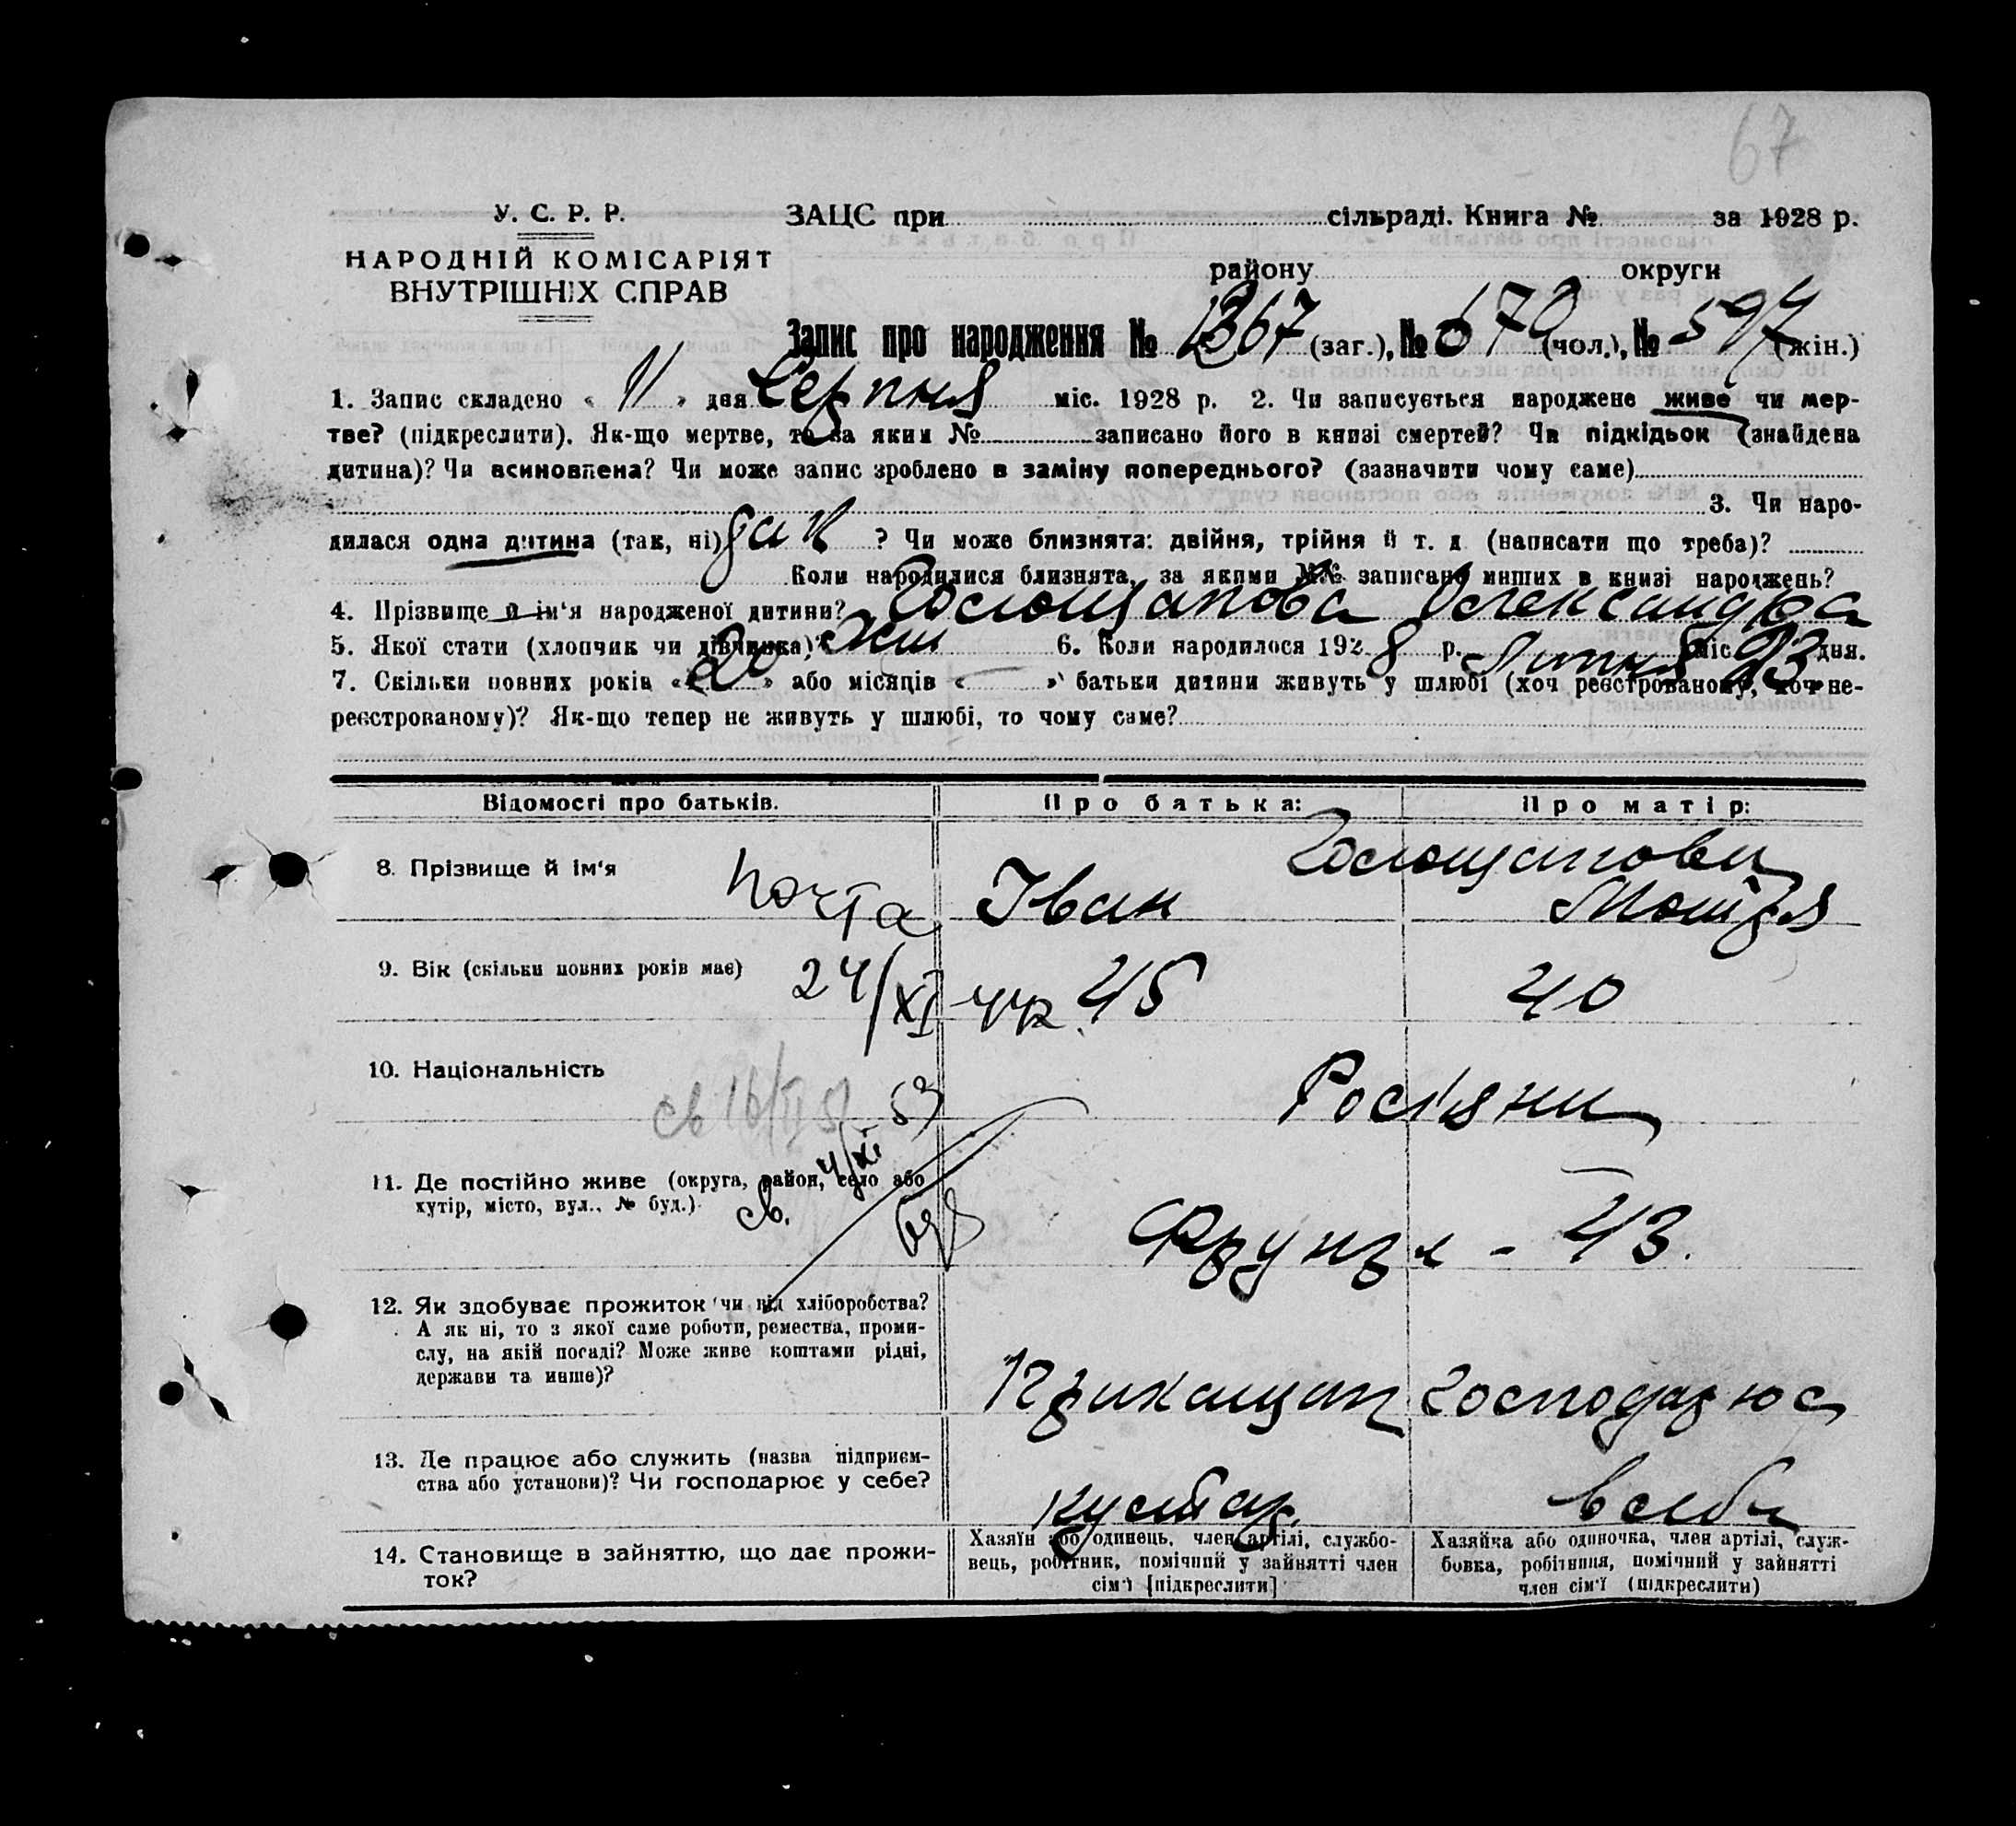 67
У. С. Р. Р.
НАРОДНІЙ КОМІСАРІЯТ
ВНУТРІШНІХ СПРАВ
ЗАЦС при сільраді. Книга № за 1928 р.
району округи
Запис про народження № 1367 (заг.), № 670 (чол.), № 597 (жін.)
1. Запис складено « 11 » дня Серпня міс. 1928 р. 2. Чи записується народжене живе чи мер-
тве? (підкреслити). Як-що мертве, то за яким № записано його в книзі смертей? Чи підкідьок (знайдена
дитина)? Чи всиновлена? Чи може запис зроблено в заміну попереднього? (зазначити чому саме)
3. Чи наро-
дилася одна дитина (так, ні) так ? Чи може близнята: двійня, трійня й т. д. (написати що треба)?
Коли народилися близнята, за якими №№ записано инших в книзі народжень?
4. Прізвище й ім'я народженої дитини? Голощапова Олександра
5. Якої стати (хлопчик чи дівчинка) жін 6. Коли народилося 1928 р. Липня міс. 23 дня.
7. Скільки повних років « 20 » або місяців « — » батьки дитини живуть у шлюбі (хоч реєстрованому, хоч не-
реєстрованому)? Як-що тепер не живуть у шлюбі, то чому саме?
Відомості про батьків. Про батька: Про матір:
8. Прізвище й ім'я
Почта
Голощапови
Іван Мотря
9. Вік (скільки повних років має) 24/XI 44р. 45 40
10. Національність Росіяни
св 16/II
св. 4/XI 53
11. Де постійно живе (округа, район, село або
хутір, місто, вул., № буд.)
Фрунзе - 43.
12. Як здобуває прожиток чи від хліборобства?
А як ні, то з якої саме роботи, ремества, проми-
слу, на якій посаді? Може живе коштами рідні,
держави та инше)?
Прикащик Господарює
13. Де працює або служить (назва підприєм-
ства або установи)? Чи господарює у себе?
кустар. в себе
14. Становище в зайняттю, що дає прожи-
ток?
Хазяїн або одинець, член артілі, службо-
вець, робітник, помічний у зайнятті член
сім'ї [підкреслити]
Хазяйка або одиночка, член артілі, служ-
бовка, робітниця, помічний у зайнятті
член сім'ї (підкреслити)